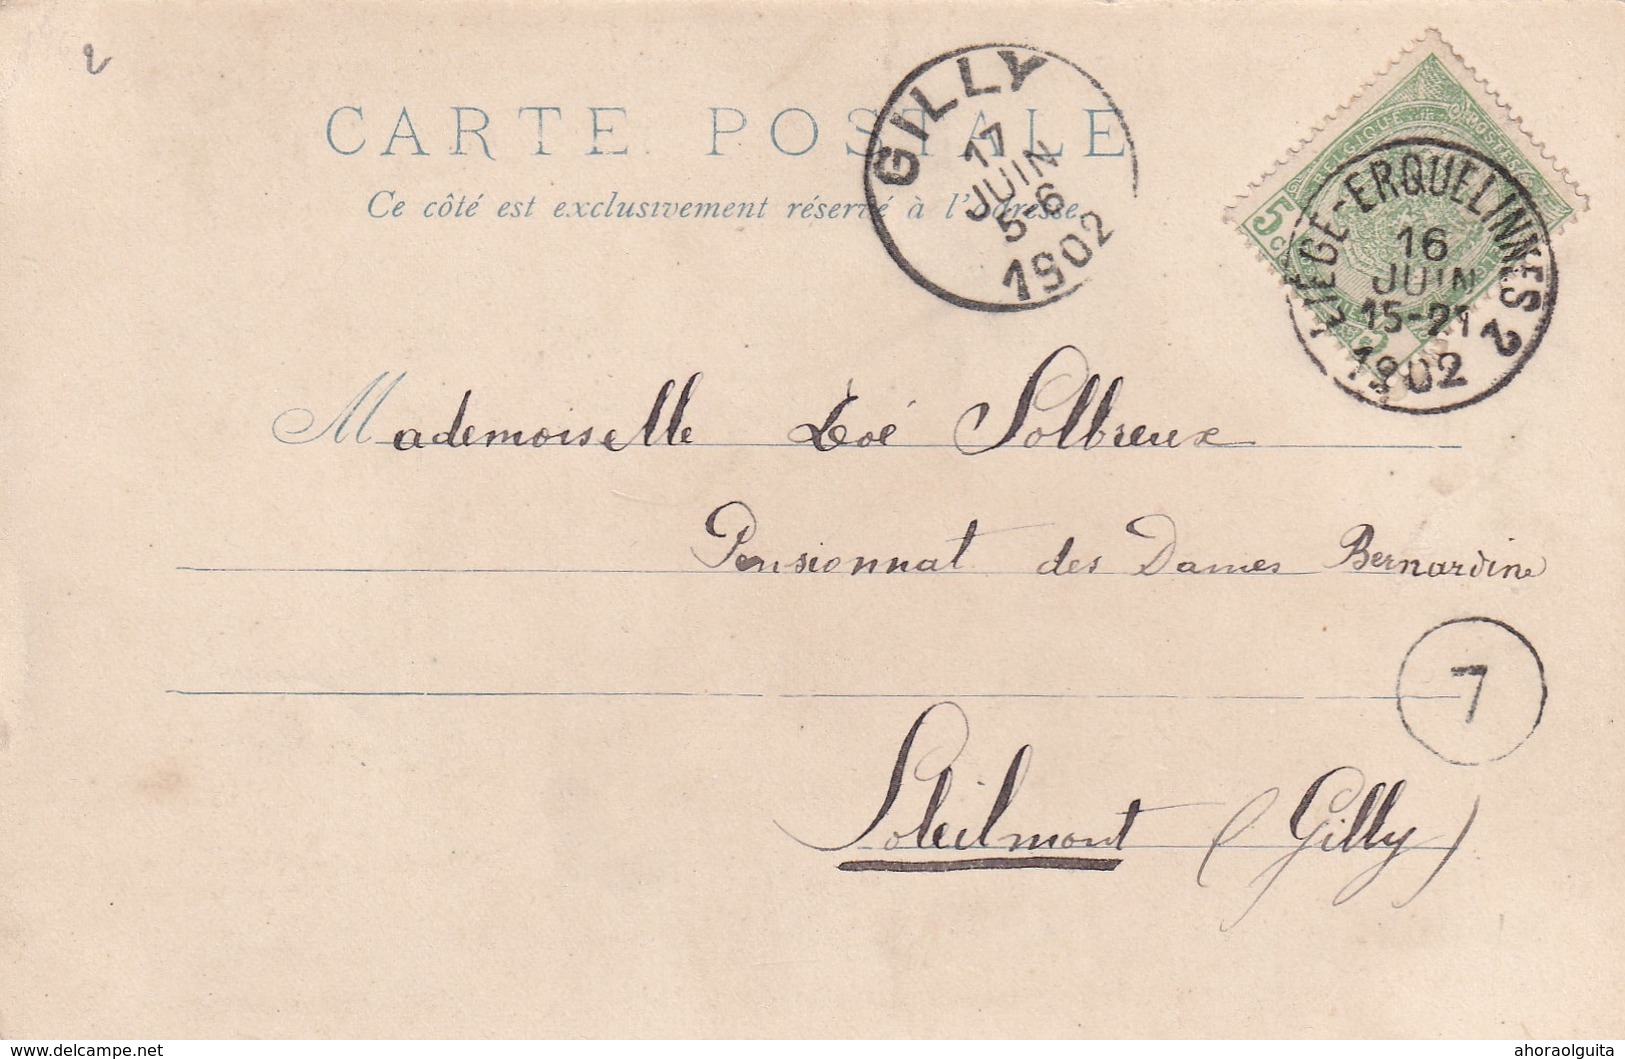 2
CARTE POSTALE
Ce côté est exclusivement réservé à l'adresse.
GILLY
17
JUIN
5-6
1902
BELGIQUE
5
LIÉGE-ERQUELINNES 2
16
JUIN
15-21
1902
Mademoiselle Zoé Solbreux
Pensionnat des Dames Bernardine
7
Soleilmont (Gilly)
www.delcampe.net
ahoraolguita